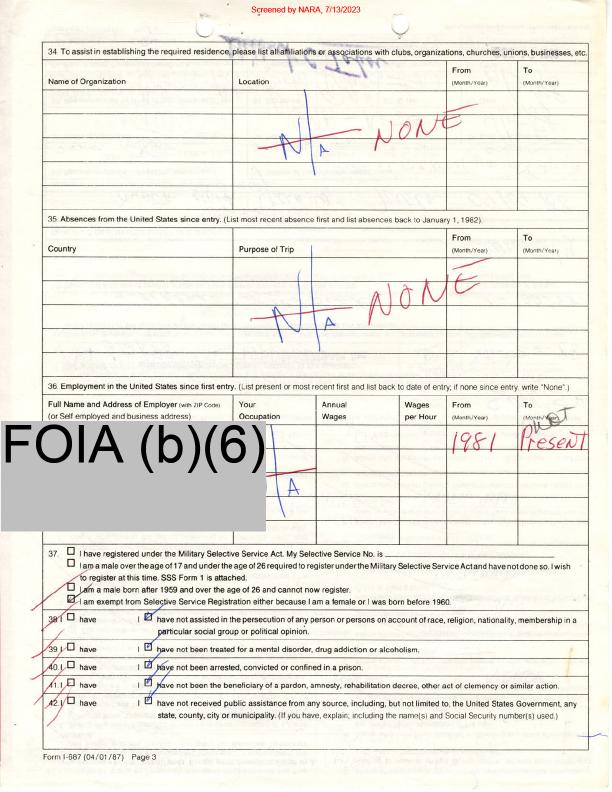 Screened by NARA, 7/13/2023
34 To assist in establishing the required residence, please list all affiliations or associations with clubs, organizations, churches, unions, businesses, etc.
Name of Organization Location From (Month/Year) To (Month/Year)
N/A NONE
35. Absences from the United States since entry. (List most recent absence first and list absences back to January 1, 1982).
Country Purpose of Trip From (Month/Year) To (Month/Year)
N/A NONE
36. Employment in the United States since first entry. (List present or most recent first and list back to date of entry; if none since entry, write "None".)
Full Name and Address of Employer (with ZIP Code) (or Self employed and business address) Your Occupation Annual Wages Wages per Hour From (Month/Year) To (Month/Year)
NOT
FOIA (b)(6) A 1981 Present
37. I have registered under the Military Selective Service Act. My Selective Service No. is
I am a male over the age of 17 and under the age of 26 required to register under the Military Selective Service Act and have not done so. I wish
to register at this time. SSS Form 1 is attached.
I am a male born after 1959 and over the age of 26 and cannot now register.
I am exempt from Selective Service Registration either because I am a female or I was born before 1960.
38. I have I have not assisted in the persecution of any person or persons on account of race, religion, nationality, membership in a
particular social group or political opinion.
39. I have I have not been treated for a mental disorder, drug addiction or alcoholism.
40. I have I have not been arrested, convicted or confined in a prison.
41. I have I have not been the beneficiary of a pardon, amnesty, rehabilitation decree, other act of clemency or similar action.
42. I have I have not received public assistance from any source, including, but not limited to, the United States Government, any
state, county, city or municipality. (If you have, explain; including the name(s) and Social Security number(s) used.)
Form I-687 (04/01/87) Page 3